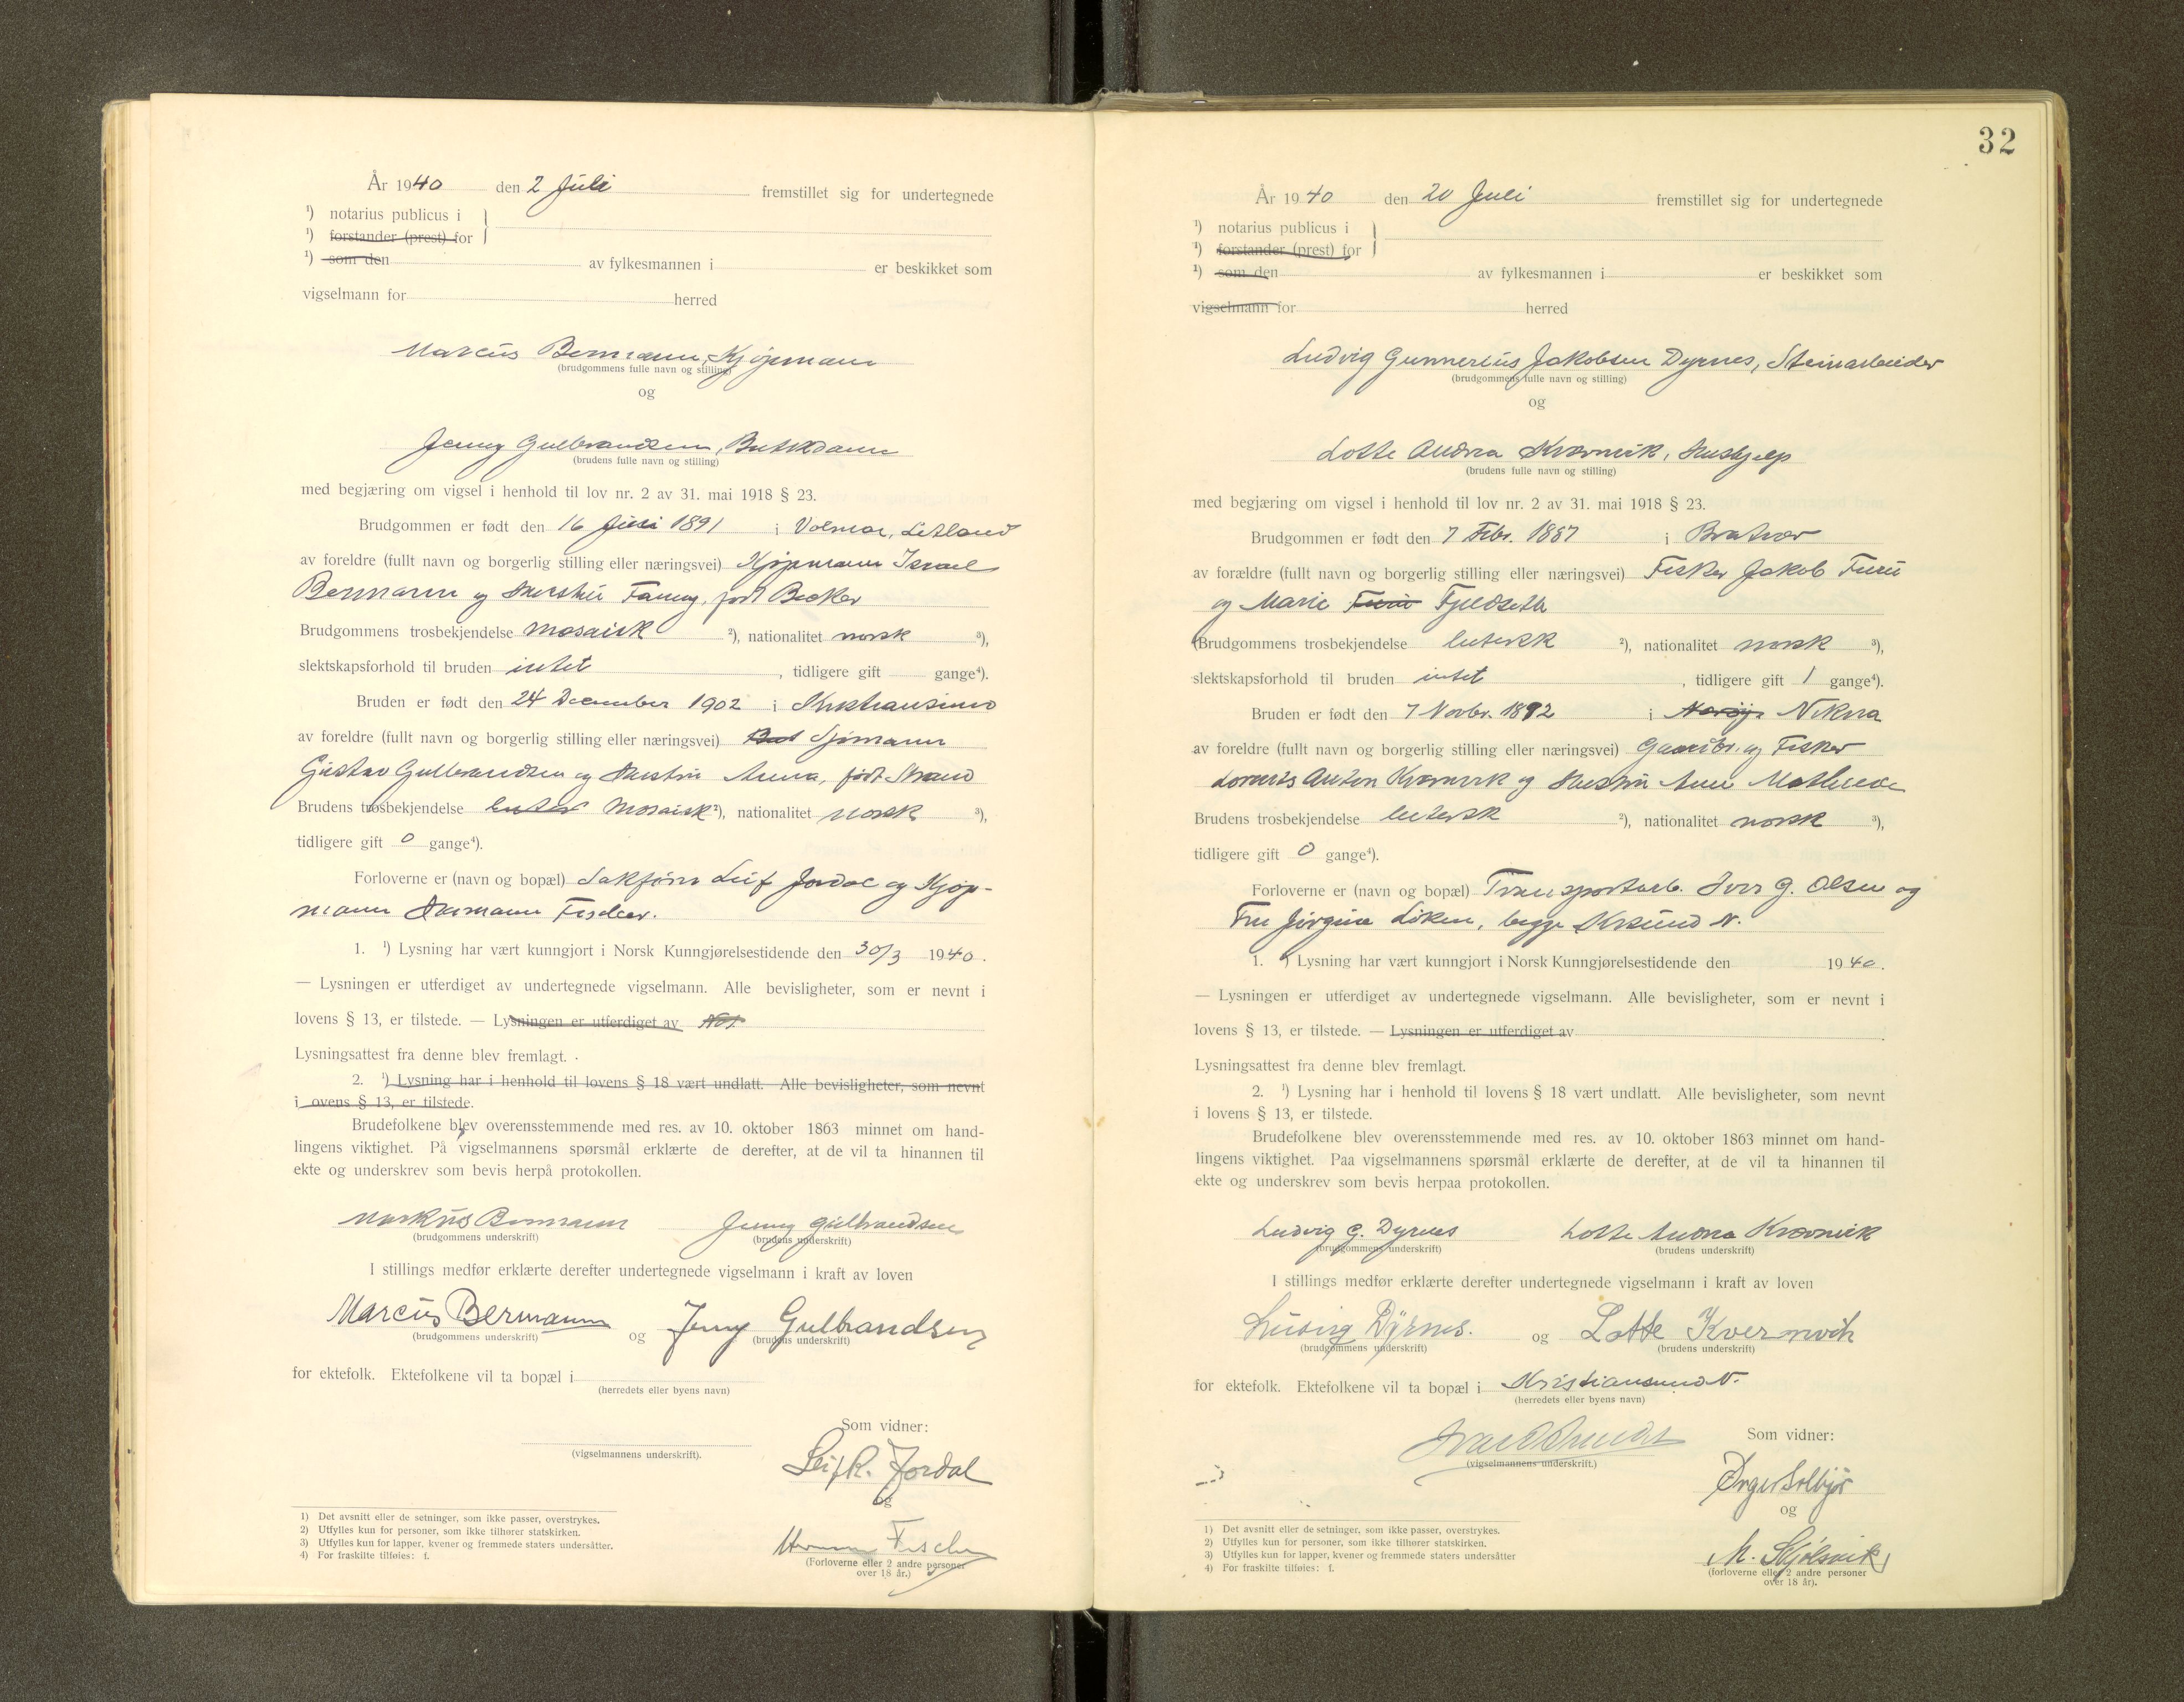 År 1940 den 2 Juli fremstillet sig for undertegnede
¹) notarius publicus i
¹) forstander (prest) for
¹) som den av fylkesmannen i er beskikket som
vigselmann for herred
Marcus Bermann, Kjøpmann
(brudgommens fulle navn og stilling)
og
Jenny Gulbrandsen, Butikdame
(brudens fulle navn og stilling)
med begjæring om vigsel i henhold til lov nr. 2 av 31. mai 1918 § 23.
Brudgommen er født den 16 Juni 1891 i Volmar, Letland
av foreldre (fullt navn og borgerlig stilling eller næringsvei) Kjøpmann Israel
Bermann og Hustru Fanny, født Becker
Brudgommens trosbekjendelse mosaisk ²), nationalitet norsk ³),
slektskapsforhold til bruden intet , tidligere gift gange⁴).
Bruden er født den 24 December 1902 i Kristiansund
av foreldre (fullt navn og borgerlig stilling eller næringsvei) Sjømann
Gustav Gulbrandsen og Hustru Anna, født Strand
Brudens trosbekjendelse luther Mosaisk ²), nationalitet norsk ³),
tidligere gift 0 gange⁴).
Forloverne er (navn og bopæl) Sakfører Leif Jordal og Kjøp-
mann Hermann Fischer.
1. ¹) Lysning har vært kunngjort i Norsk Kunngjørelsestidende den 30/3 1940.
— Lysningen er utferdiget av undertegnede vigselmann. Alle bevisligheter, som er nevnt i
lovens § 13, er tilstede. — Lysningen er utferdiget av Not.
Lysningsattest fra denne blev fremlagt.
2. ¹) Lysning har i henhold til lovens § 18 vært undlatt. Alle bevisligheter, som nevnt
i lovens § 13, er tilstede.
Brudefolkene blev overensstemmende med res. av 10. oktober 1863 minnet om hand-
lingens viktighet. På vigselmannens spørsmål erklærte de derefter, at de vil ta hinannen til
ekte og underskrev som bevis herpå protokollen.
Markus Bermann Jenny Gulbrandsen
(brudgommens underskrift) (brudens underskrift)
I stillings medfør erklærte derefter undertegnede vigselmann i kraft av loven
Marcus Bermann og Jenny Gulbrandsen
(brudgommens underskrift) (brudens underskrift)
for ektefolk. Ektefolkene vil ta bopæl i
(herredets eller byens navn)
Som vidner:
(vigselmannens underskrift).
Leif R. Jordal
og
Herman Fischer
(Forloverne eller 2 andre personer
over 18 år.)
1) Det avsnitt eller de setninger, som ikke passer, overstrykes.
2) Utfylles kun for personer, som ikke tilhører statskirken.
3) Utfylles kun for lapper, kvener og fremmede staters undersåtter.
4) For fraskilte tilføies: f.
32
År 1940 den 20 Juli fremstillet sig for undertegnede
¹) notarius publicus i
¹) forstander (prest) for
¹) som den av fylkesmannen i er beskikket som
vigselmann for herred
Ludvig Gunnerius Jakobsen Dyrnes, Steinarbeider
(brudgommens fulle navn og stilling)
og
Lotte Andrea Kvernvik, Hushjelp
(brudens fulle navn og stilling)
med begjæring om vigsel i henhold til lov nr. 2 av 31. mai 1918 § 23.
Brudgommen er født den 7 Febr. 1887 i Bratvær
av forældre (fullt navn og borgerlig stilling eller næringsvei) Fisker Jakob Furu
og Marie Furu Fjeldseth
Brudgommens trosbekjendelse luthersk ²), nationalitet norsk ³),
slektskapsforhold til bruden intet , tidligere gift 1 gange⁴).
Bruden er født den 7 Novbr. 1892 i Nærøy Vikna
av foreldre (fullt navn og borgerlig stilling eller næringsvei) Gaardbr. og Fisker
Anton Kvernvik og Hustru Anne Mathilde
Brudens trosbekjendelse luthersk ²), nationalitet norsk ³),
tidligere gift 0 gange⁴).
Forloverne er (navn og bopæl) Transportarb. Iver G. Olsen og
Fru Jørgine Løken, begge Krsund N.
1. ¹) Lysning har vært kunngjort i Norsk Kunngjørelsestidende den 1940.
— Lysningen er utferdiget av undertegnede vigselmann. Alle bevisligheter, som er nevnt i
lovens § 13, er tilstede. — Lysningen er utferdiget av
Lysningsattest fra denne blev fremlagt.
2. ¹) Lysning har i henhold til lovens § 18 vært undlatt. Alle bevisligheter, som nevnt
i lovens § 13, er tilstede.
Brudefolkene blev overensstemmende med res. av 10. oktober 1863 minnet om hand-
lingens viktighet. Paa vigselmannens spørsmål erklærte de derefter, at de vil ta hinannen til
ekte og underskrev som bevis herpaa protokollen.
Ludvig G. Dyrnes Lotte Andrea Kvernvik
(brudgommens underskrift) (brudens underskrift)
I stillings medfør erklærte derefter undertegnede vigselmann i kraft av loven
Ludvig Dyrnes. og Lotte Kvernvik
(brudgommens underskrift) (brudens underskrift)
for ektefolk. Ektefolkene vil ta bopæl i Kristiansund N.
(herredets eller byens navn)
Som vidner:
(vigselmannens underskrift.)
Solbjør
og
M. Skjølsvik
(forloverne eller 2 andre personer
over 18 år).
1) Det avsnitt eller de setninger, som ikke passer, overstrykes.
2) Utfylles kun for personer, som ikke tilhører statskirken.
3) Utfylles kun for lapper, kvener og fremmede staters undersåtter
4) For fraskilte tilføies: f.